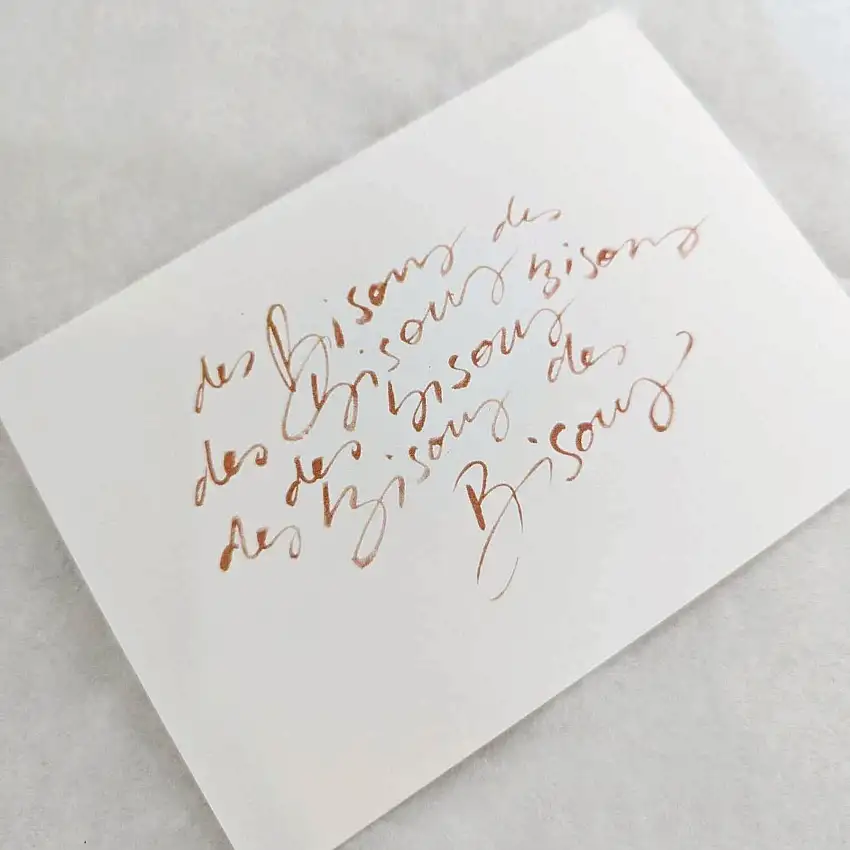 des Bisous des
des Bisous Bisous
des Bisous
des Bisous des
Bisous